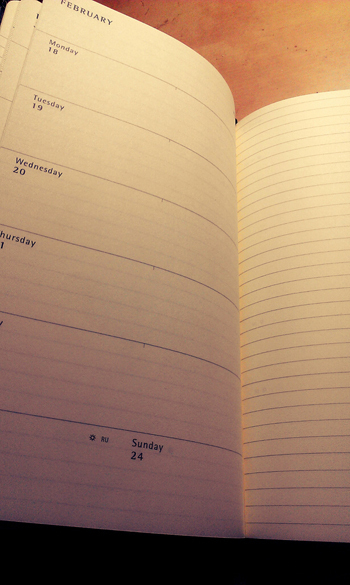 FEBRUARY
Monday
18
Tuesday
19
Wednesday
20
hursday
1
RU
Sunday
24